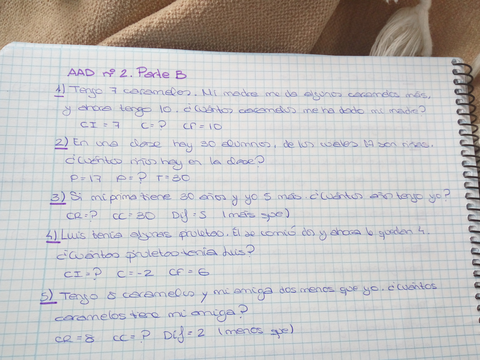 AAD nº 2. Parte B
1) Tengo 7 caramelos. Mi madre me da algunos caramelos más,
y ahora tengo 10. ¿Cuántos caramelos me ha dado mi madre?
CI = 7 C = ? CF = 10
2) En una clase hay 30 alumnos, de los cuales 17 son niñas.
¿Cuántos niños hay en la clase?
P = 17 P = ? T = 30
3) Si mi prima tiene 30 años y yo 5 más ¿Cuántos años tengo yo?
CR = ? CC = 30 Dif = 5 (más que)
4) Luis tenía algunas piruletas. Él se comió dos y ahora le quedan 4.
¿Cuántas piruletas tenía Luis?
CI = ? C = -2 CF = 6
5) Tengo 8 caramelos y mi amiga dos menos que yo. ¿Cuántos
caramelos tiene mi amiga?
CR = 8 CC = ? Dif = 2 (menos que)